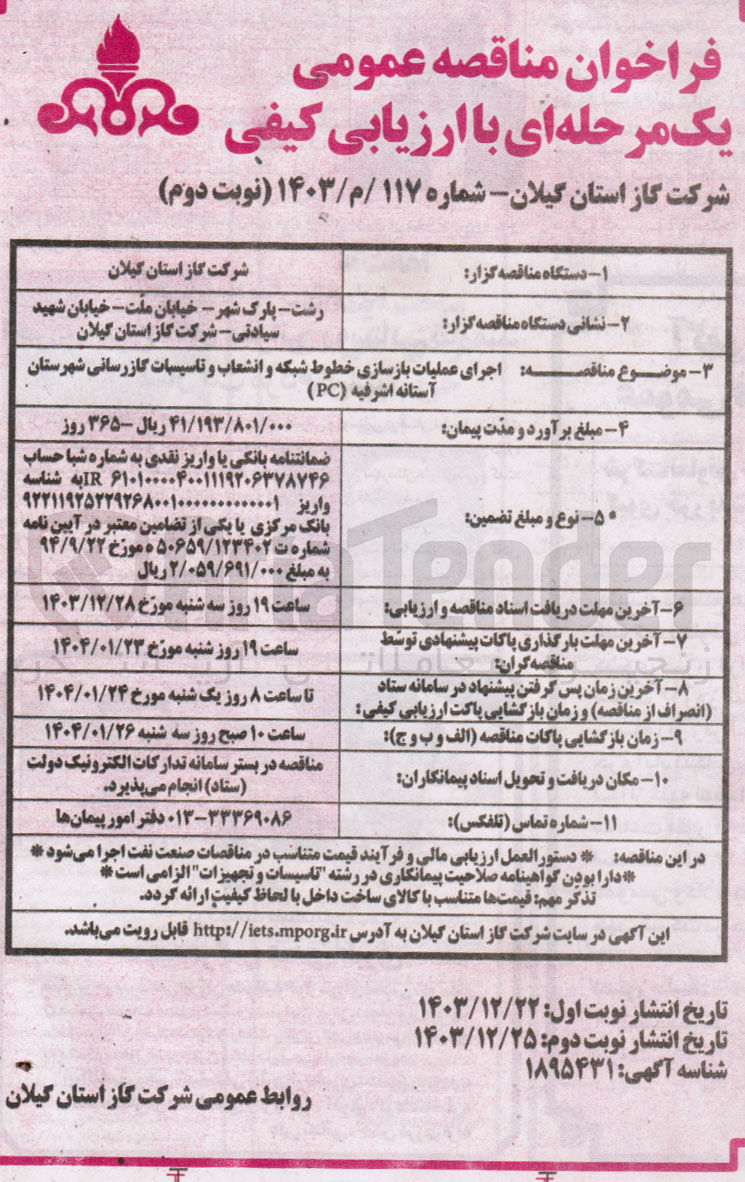 فراخوان مناقصه عمومی
یک‌مرحله‌ای با ارزیابی کیفی
شرکت گاز استان گیلان – شماره ۱۱۷ /م/۱۴۰۳ (نوبت دوم)
۱- دستگاه مناقصه‌گزار: شرکت گاز استان گیلان
۲- نشانی دستگاه مناقصه‌گزار: رشت- پارک شهر - خیابان ملّت- خیابان شهید
سیادتی- شرکت گاز استان گیلان
۳- موضوع مناقصه: اجرای عملیات بازسازی خطوط شبکه و انشعاب و تاسیسات گازرسانی شهرستان
آستانه اشرفیه (PC)
۴- مبلغ برآورد و مدّت پیمان: ۴۱/۱۹۳/۸۰۱/۰۰۰ ریال -۳۶۵ روز
* ۵- نوع و مبلغ تضمین: ضمانتنامه بانکی یا واریز نقدی به شماره شبا حساب
IR ۶۱۰۱۰۰۰۰۴۰۰۱۱۱۹۲۰۶۳۷۸۷۴۶ به شناسه
واریز ۹۲۲۱۱۹۲۵۲۲۹۲۶۸۰۰۱۰۰۰۰۰۰۰۰۰۰۰۰۱
بانک مرکزی یا یکی از تضامین معتبر در آیین نامه
شماره ت ۵۰۶۵۹/۱۲۳۴۰۲ ه مورّخ ۹۴/۹/۲۲
به مبلغ ۲/۰۵۹/۶۹۱/۰۰۰ ریال
۶- آخرین مهلت دریافت اسناد مناقصه و ارزیابی: ساعت ۱۹ روز سه شنبه مورّخ ۱۴۰۳/۱۲/۲۸
۷- آخرین مهلت بارگذاری پاکات پیشنهادی توسّط
مناقصه‌گران: ساعت ۱۹ روز شنبه مورّخ ۱۴۰۴/۰۱/۲۳
۸- آخرین زمان پس گرفتن پیشنهاد در سامانه ستاد
(انصراف از مناقصه) و زمان بازگشایی پاکت ارزیابی کیفی: تا ساعت ۸ روز یک شنبه مورخ ۱۴۰۴/۰۱/۲۴
۹- زمان بازگشایی پاکات مناقصه (الف و ب و ج): ساعت ۱۰ صبح روز سه شنبه ۱۴۰۴/۰۱/۲۶
۱۰- مکان دریافت و تحویل اسناد پیمانکاران: مناقصه در بستر سامانه تدارکات الکترونیک دولت
(ستاد) انجام می‌پذیرد.
۱۱- شماره تماس (تلفکس): ۰۱۳-۳۳۳۶۹۰۸۶ دفتر امور پیمان‌ها
در این مناقصه: * دستورالعمل ارزیابی مالی و فرآیند قیمت متناسب در مناقصات صنعت نفت اجرا می‌شود *
*دارا بودن گواهینامه صلاحیت پیمانکاری در رشته "تاسیسات و تجهیزات" الزامی است *
تذکر مهم: قیمت‌ها متناسب با کالای ساخت داخل با لحاظ کیفیت ارائه گردد.
این آگهی در سایت شرکت گاز استان گیلان به آدرس http://iets.mporg.ir قابل رویت می‌باشد.
تاریخ انتشار نوبت اول: ۱۴۰۳/۱۲/۲۲
تاریخ انتشار نوبت دوم: ۱۴۰۳/۱۲/۲۵
شناسه آگهی: ۱۸۹۵۴۳۱
روابط عمومی شرکت گاز استان گیلان